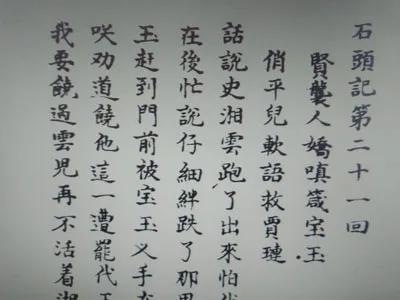 石頭記第二十一回
賢襲人嬌嗔箴宝玉
俏平兒軟語救賈璉
話說史湘雲跑了出來怕
在後忙說仔細絆跌了那
玉赶到門前被宝玉乂手
咲劝道饒他這一遭罷代
我要饒過雲児再不活着湘